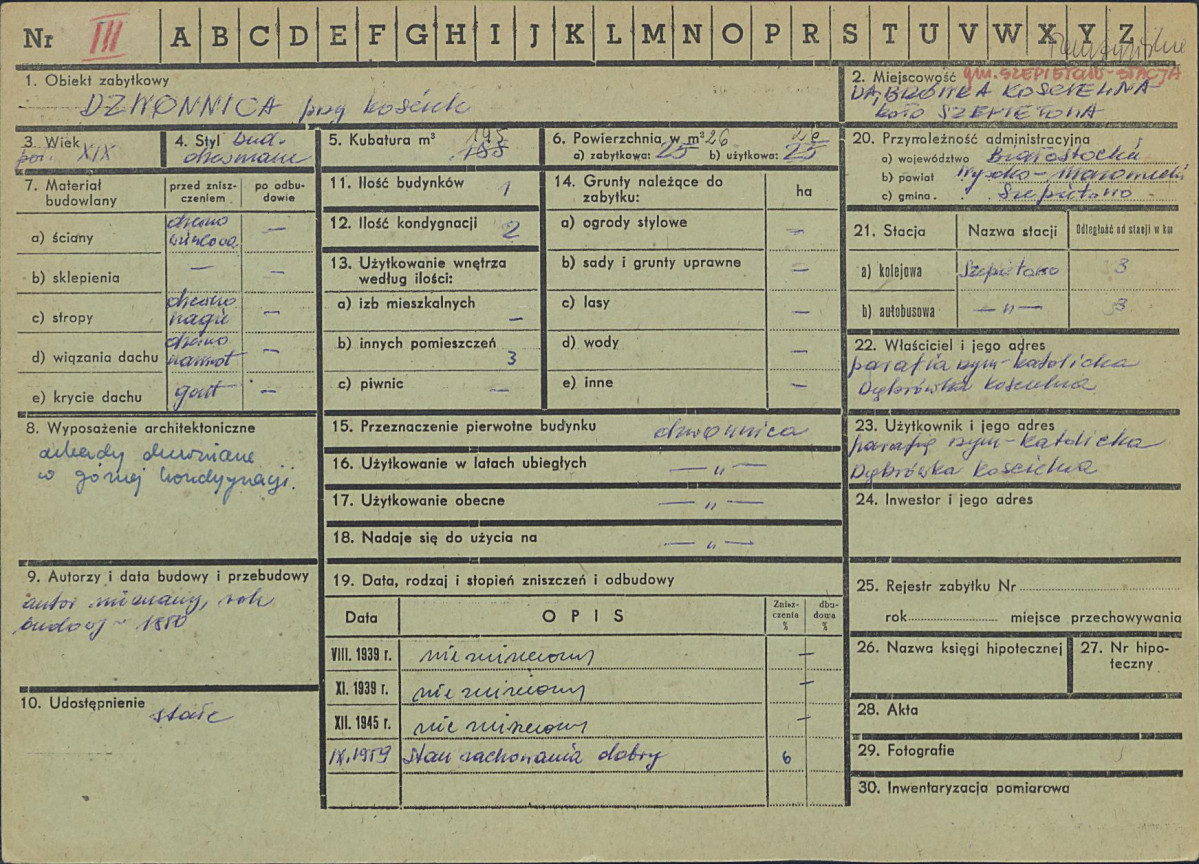 Nr III A B C D E F G H I J K L M N O P R S T U V W X Y Z
1. Obiekt zabytkowy
DZWONNICA przy kościele
2. Miejscowość gm. SZEPIETOWO-STACJA
DĄBRÓWKA KOŚCIELNA
koło SZEPIETOWA
3. Wiek
XIX
4. Styl bud.
drewniane
5. Kubatura m³ 195
188
6. Powierzchnia w m² 26
a) zabytkowa: 25 b) użytkowa: 25
7. Materiał budowlany
przed zniszczeniem
po odbudowie
a) ściany
drewno
—
b) sklepienia — —
c) stropy
drewno
nagie
—
d) wiązania dachu
drewno
—
e) krycie dachu gont —
8. Wyposażenie architektoniczne
arkady drewniane
w górnej kondygnacji.
9. Autorzy i data budowy i przebudowy
autor nieznany, rok
budowy ~ 1850
10. Udostępnienie
stałe
11. Ilość budynków 1
12. Ilość kondygnacji 2
13. Użytkowanie wnętrza
według ilości:
a) izb mieszkalnych —
b) innych pomieszczeń 3
c) piwnic —
14. Grunty należące do
zabytku:
ha
a) ogrody stylowe —
b) sady i grunty uprawne —
c) lasy —
d) wody —
e) inne —
15. Przeznaczenie pierwotne budynku dzwonnica
16. Użytkowanie w latach ubiegłych — " —
17. Użytkowanie obecne — " —
18. Nadaje się do użycia na — " —
19. Data, rodzaj i stopień zniszczeń i odbudowy
Data OPIS Zniszczenia % dbudowa %
VIII. 1939 r. nie zniszczony —
XI. 1939 r. nie zniszczony —
XII. 1945 r. nie zniszczony —
IX. 1959 Stan zachowania dobry 6
20. Przynależność administracyjna
a) województwo Białostockie
b) powiat Wysoko-Mazowiecki
c) gmina . Szepietowo
21. Stacja Nazwa stacji Odległość od stacji w km
a) kolejowa Szepietowo 3
b) autobusowa — " — 3
22. Właściciel i jego adres
parafia rzym-katolicka
Dąbrówka Kościelna
23. Użytkownik i jego adres
parafia rzym-katolicka
Dąbrówka Kościelna
24. Inwestor i jego adres
25. Rejestr zabytku Nr
rok miejsce przechowywania
26. Nazwa księgi hipotecznej
27. Nr hipoteczny
28. Akta
29. Fotografie
30. Inwentaryzacja pomiarowa